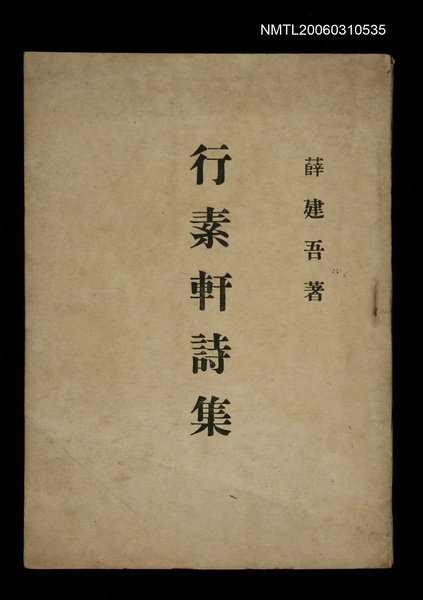 NMTL20060310535
薛建吾著
行素軒詩集